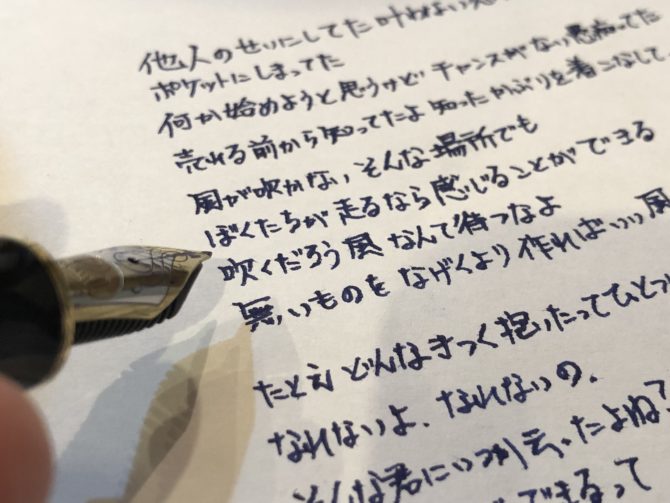 他人のせいにしてた 叶わない
ポケットにしまってた
何か始めようと思うけど チャンスがない愚痴ってた
売れる前から知ってたよ 知ったかぶりを着こなして
風が吹かない、そんな場所でも
ぼくたちが走るなら感じることができる
吹くだろう風 なんて待つなよ
無いものをなげくより 作ればいい風
たとえどんなきつく抱いたってひとつ
なれないよ、なれないの、
そんな君にいつか云ったよね?
できるって